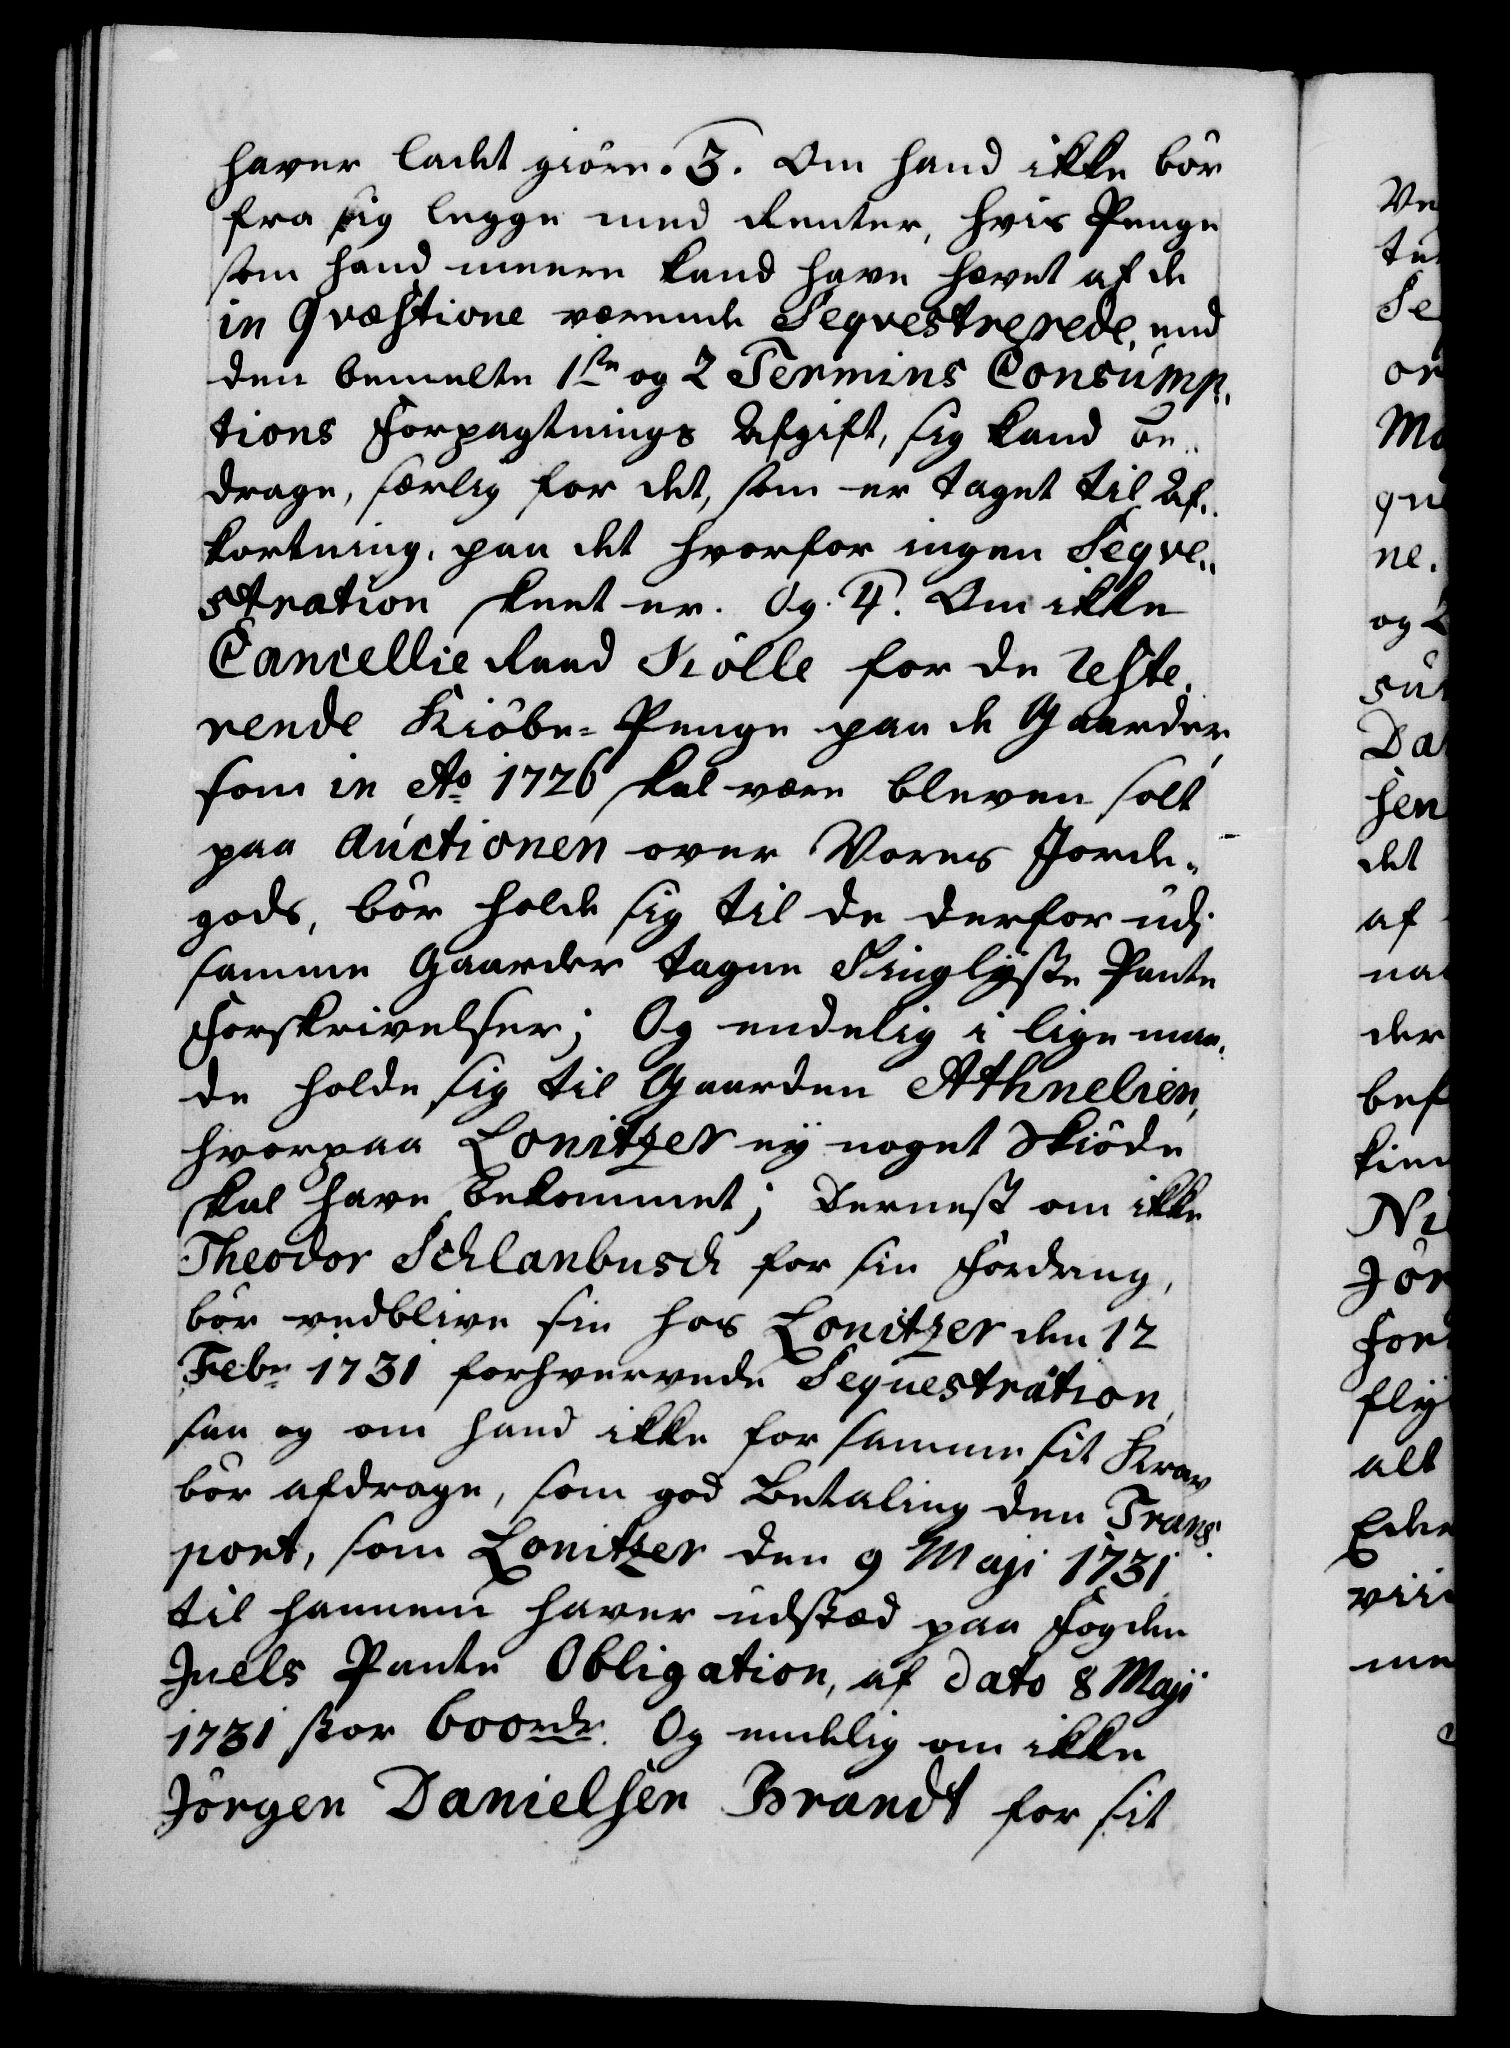 haver ladet giöre. 3. Om hand ikke bör
fra sig legge med Renter, hvis Penge
som hand meere kand have hævet af de
in Qvæstione værende Seqvestrerede, end
den bemelte 1ste og 2 Termins Consump,,
tions Forpagtnings Afgift, sig kand be,,
drage, særlig for det, som er taget til Af,,
kortning, paa det hvorfor ingen Seqve,,
stration skeet er. Og. 4. Om ikke
Cancellie Raad Kölle for de reste,,
rende Kiöbe-Penge paa de Gaarder,
som in Ao 1726 skal være bleven solt
paa Auctionen over Vores Jorde-
gods, bör holde sig til de derfor udj
samme Gaarder tagne Tinglyste Pante
Forskrivelser; Og endelig i lige maa,,
de holde sig til Gaarden Athnelien,
hvorpaa Lonitzer ey noget Skiöde
skal have bekommet; Dernest om ikke
Theodor Schlanbusch for sin Fordring,
bör vedblive sin hos Lonitzer den 12
Febr 1731 forhvervede Sequestration,
saa og om hand ikke for samme sit Krav
bör afdrage, som god Betaling den Trans
port, som Lonitzer den 9 Maji 1731
til hannem haver udstæd paa Fogden
Juels Pante Obligation, af dato 8 Maji
1731 stor 600 rdr. Og endelig om ikke
Jörgen Danielsen Brandt for sit